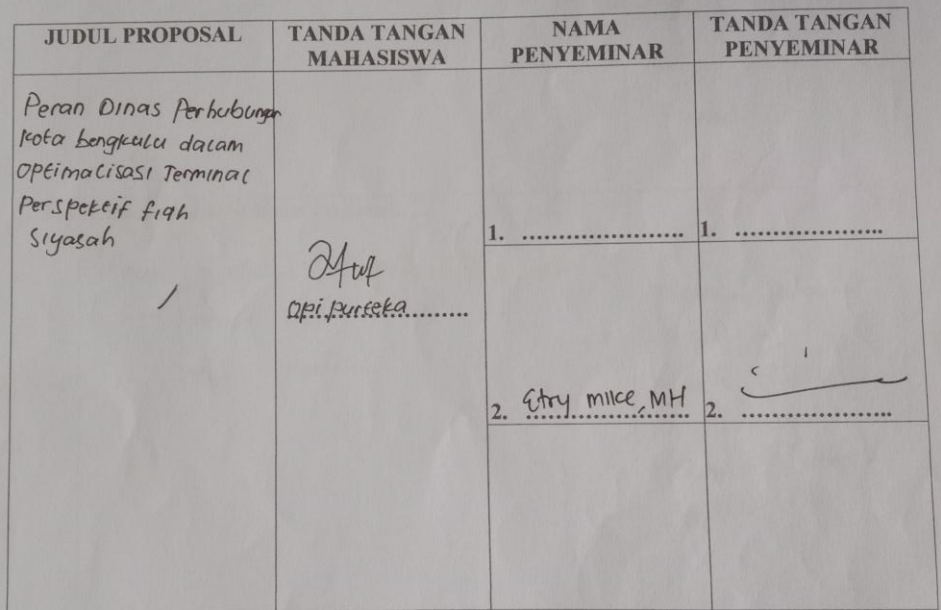 JUDUL PROPOSAL
TANDA TANGAN
MAHASISWA
NAMA
PENYEMINAR
TANDA TANGAN
PENYEMINAR
Peran Dinas Perhubungan
Kota bengkulu dalam
Optimalisasi Terminal
Perspektif fiqh
Siyasah
Opi purteka..........
1. ......................
1. ....................
2. Etry mike, MH
2. ....................